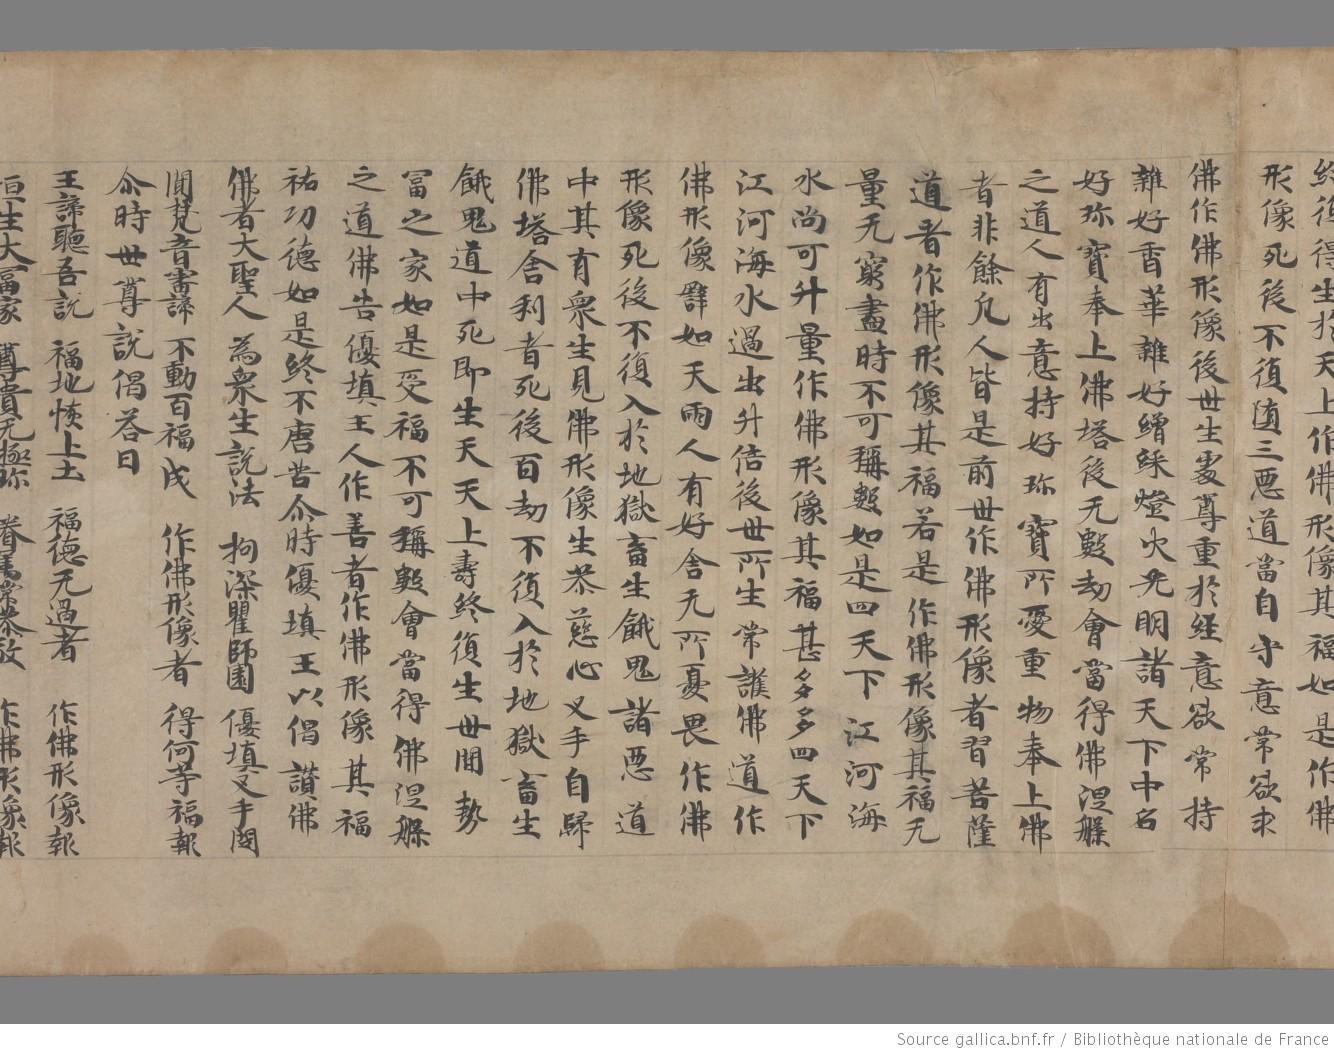 終復得生於天上作佛形像其福如是作佛
形像死後不復墮三惡道當自守意常欲求
佛作佛形像後世生處尊重於經意欲常持
雜好香華雜好繒綵燈火光明諸天下中名
好珎寶奉上佛塔後无數劫會當得佛涅槃
之道人有出意持好珎寶所愛重物奉上佛
者非餘凡人皆是前世作佛形像者習菩薩
道者作佛形像其福若是作佛形像其福无
量无窮盡時不可稱數如是四天下江河海
水尚可升量作佛形像其福甚多多四天下
江河海水過出升倍後世所生常護佛道作
佛形像譬如天雨人有好舍无所憂畏作佛
形像死後不復入於地獄畜生餓鬼諸惡道
中其有衆生見佛形像生恭慈心叉手自歸
佛塔舍利者死後百劫不復入於地獄畜生
餓鬼道中死即生天天上壽終復生世間勢
冨之家如是受福不可稱數會當得佛涅槃
之道佛告優填王人作善者作佛形像其福
祐功德如是終不唐苦尒時優填王以偈讚佛
佛者大聖人 為衆生說法 拘深瞿師園 優填叉手聞
聞梵音審諦 不動百福成 作佛形像者 得何等福報
尒時世尊說偈荅曰
王諦聽吾説 福地恢上土 福德无過者 作佛形像報
恒生大冨家 尊貴无極珎 眷属常恭敬 作佛形像報
Source gallica.bnf.fr / Bibliothèque nationale de France